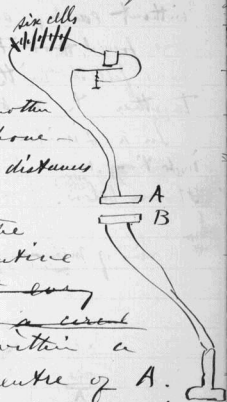 six cells
other
hone
distances
A
B
the
ntine
a circuit
within a
entre of A.